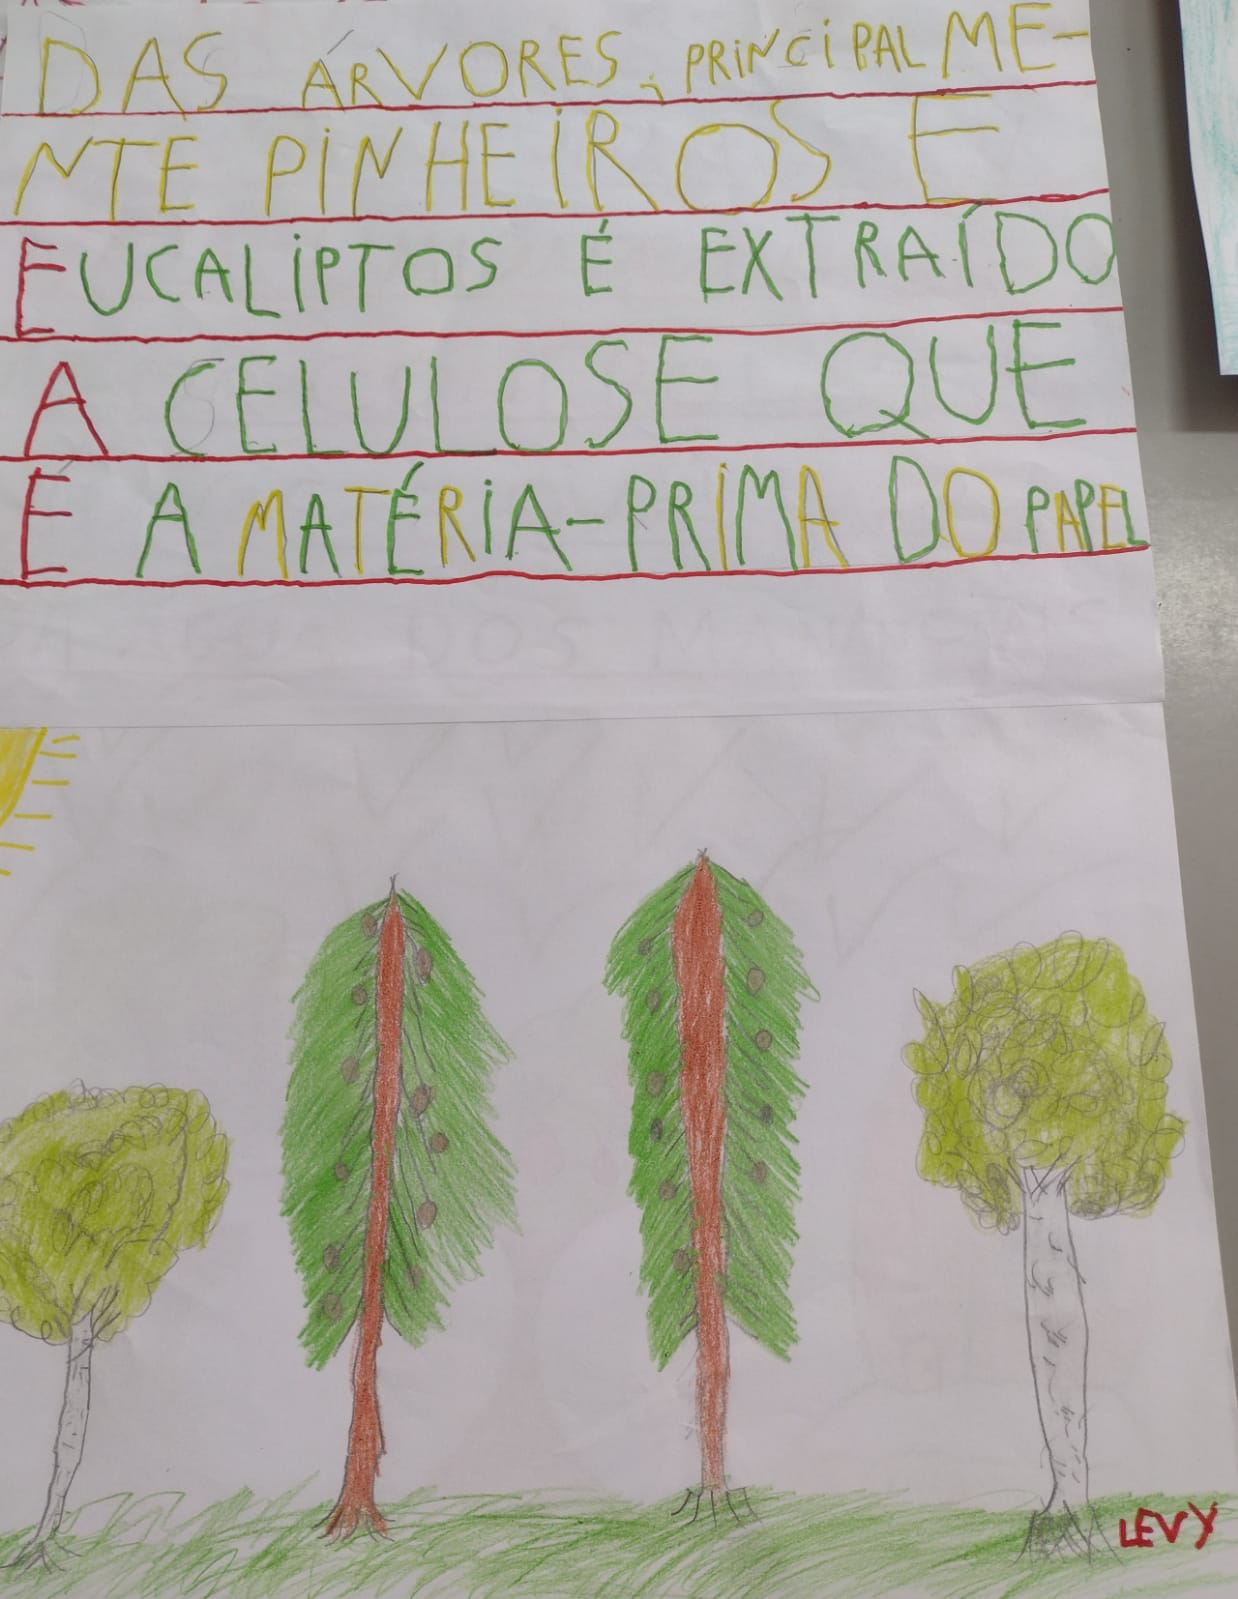 DAS ÁRVORES, PRINCIPALME-
NTE PINHEIROS E
EUCALIPTOS É EXTRAÍDO
A CELULOSE QUE
É A MATÉRIA-PRIMA DO PAPEL
LEVY